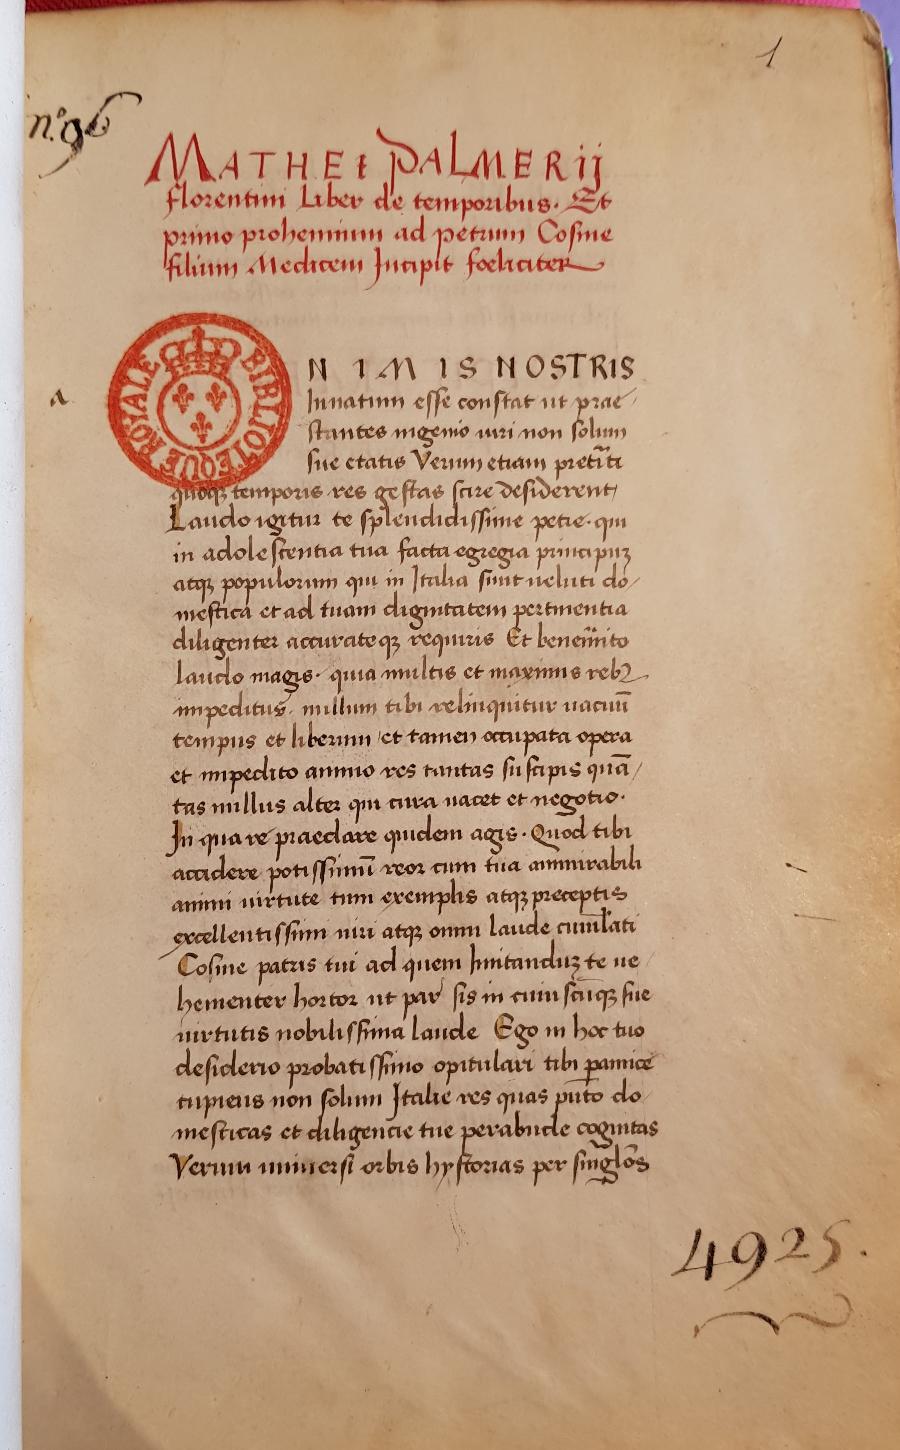 1
nº. 96
MATHEI PALMERIJ
florentini Liber de temporibus. Et
primo prohemium ad petrum Cosme
filium Medicem Incipit foeliciter
BIBLIOTEQUE ROYALE
a
NIMIS NOSTRIS
Innatum esse constat ut prae
stantes ingenio uiri non solum
sue etatis Verum etiam pretīti
quoqꝫ temporis res gestas scire desiderent
Laudo igitur te splendidissime petre. qui
in adolescentia tua facta egregia principuꝫ
atqꝫ populorum qui in Italia sunt ueluti do
mestica et ad tuam dignitatem pertinentia
diligenter accurateqꝫ requiris Et benem̄ito
laudo magis. quia multis et maximis rebꝫ
impeditus. nullum tibi relinquitur uacuū
tempus et liberum et tamen occupata opera
et impedito animo res tantas suscipis quā
tas nullus alter qui cura uacet et negotio.
In qua re praeclare quidem agis. Quod tibi
accidere potissimū reor cum tua ammirabili
animi uirtute tum exemplis atqꝫ preceptis
excellentissimi uiri atqꝫ omni laude cumlati
Cosme patris tui ad quem Imitanduꝫ te ue
hementer hortor ut par sis in cuiuscūqꝫ sue
uirtutis nobilissima laude Ego in hoc tuo
desiderio probatissimo opitulari tibi ꝑamice
cupiens non solum Italie res quas puto do
mesticas et diligencie tue perabude cognitas
Verum uniuersi orbis hystorias per singlos
4925.